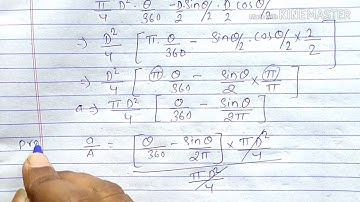 π/4 D² · θ/360 - D sinθ/2 /2 · D cosθ/2 /2
KINEMASTER
⇒ D²/4 [ π · θ/360 - sinθ/2 · cosθ/2 × 2/2 ]
⇒ D²/4 [ π θ/360 - sinθ/2 × π/π ]
a ⇒ πD²/4 [ θ/360 - sinθ/2π ]
pro a/A = [ θ/360 - sinθ/2π ] × πD²/4 / πD²/4